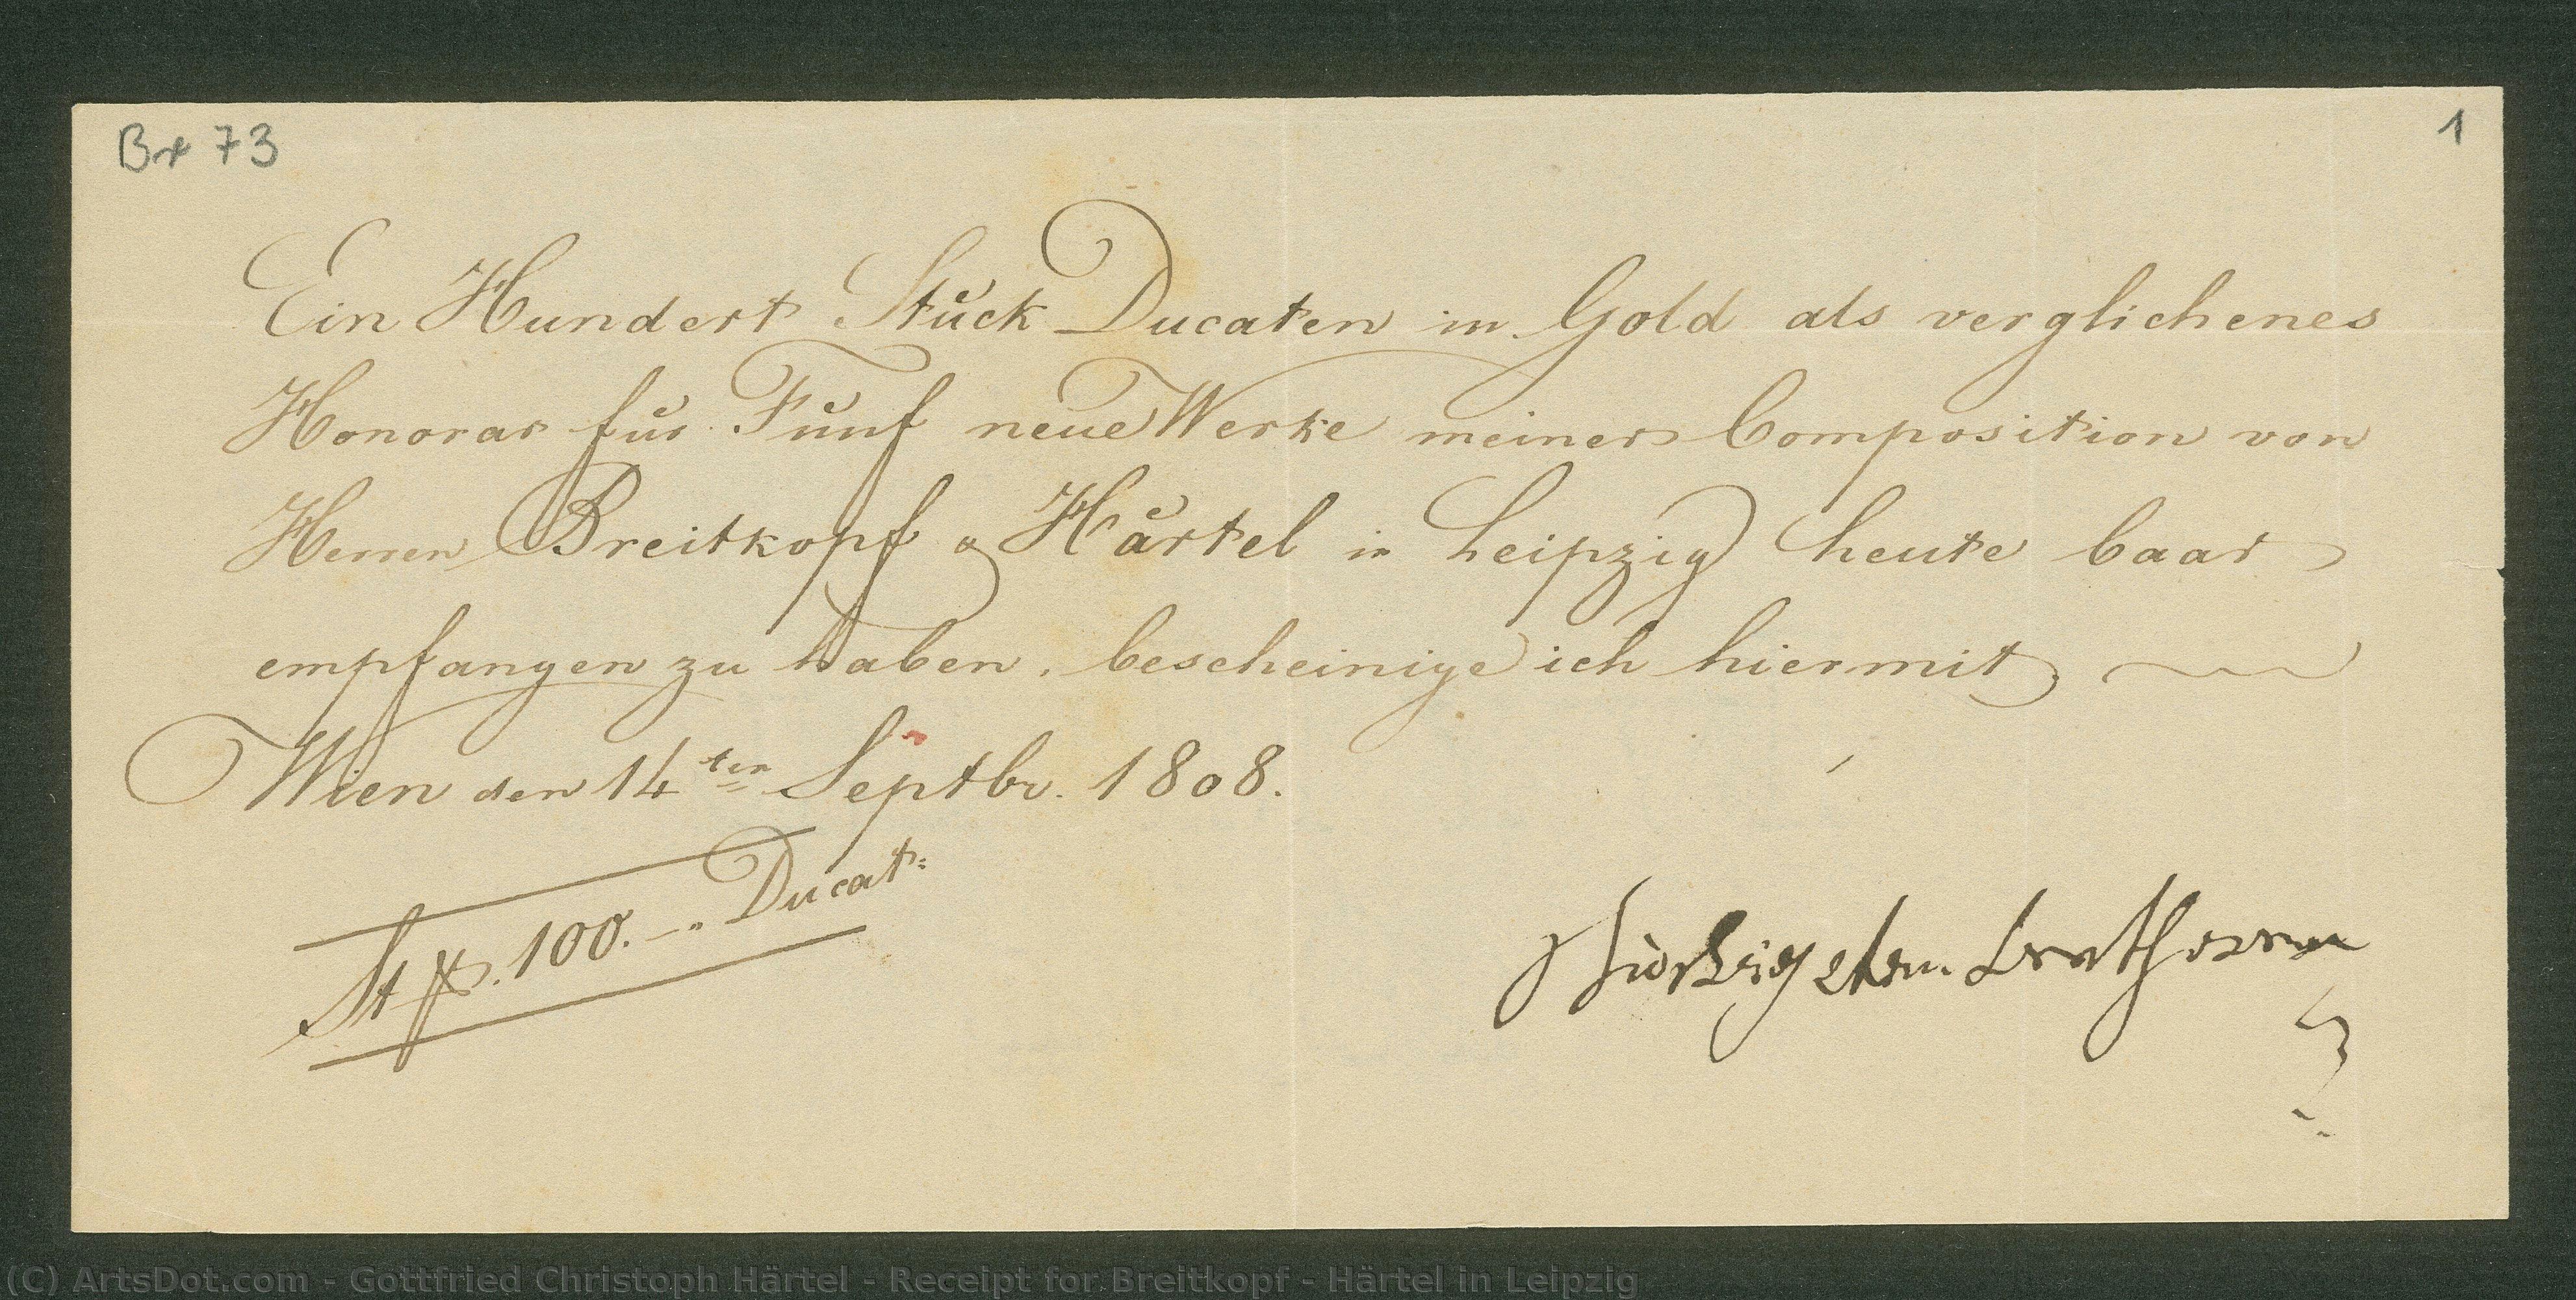 Br 73
1
Ein Hundert Stück Ducaten in Gold als verglichenes
Honorar für Fünf neue Werke meiner Composition von
Herren Breitkopf & Härtel in Leipzig heute baar
empfangen zu haben, bescheinige ich hiermit
Wien den 14ten Septbr. 1808.
St #. 100. — " Ducat:
Ludwig van Beethoven
(C) ArtsDot.com - Gottfried Christoph Härtel - Receipt for Breitkopf - Härtel in Leipzig